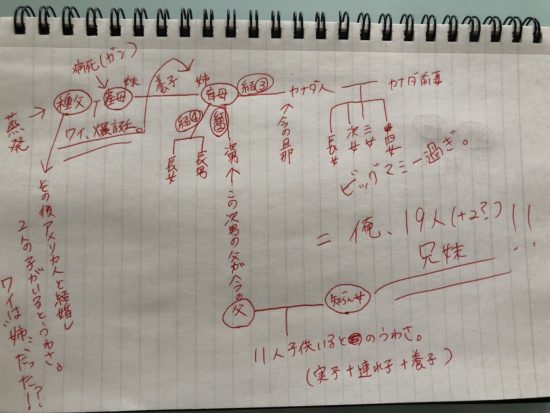 病死(ガン)
蒸発
種父
産母
妹
養子
姉
育母
結③
カナダ人
カナダ前妻
ワイ、爆誕。
結①
結②
長女
長男
次男
↑この次男の父が今の
父
↑今の旦那
長女
次女
三女
四女
ビッグマミー過ぎ。
= 俺、19人(+2?)!!
兄妹
その後アメリカ人と結婚し
2人の子がいるとうわさ。
ワイは"姉"だった!?
知らん女
11人子供いるとのうわさ。
(実子+連れ子+養子)